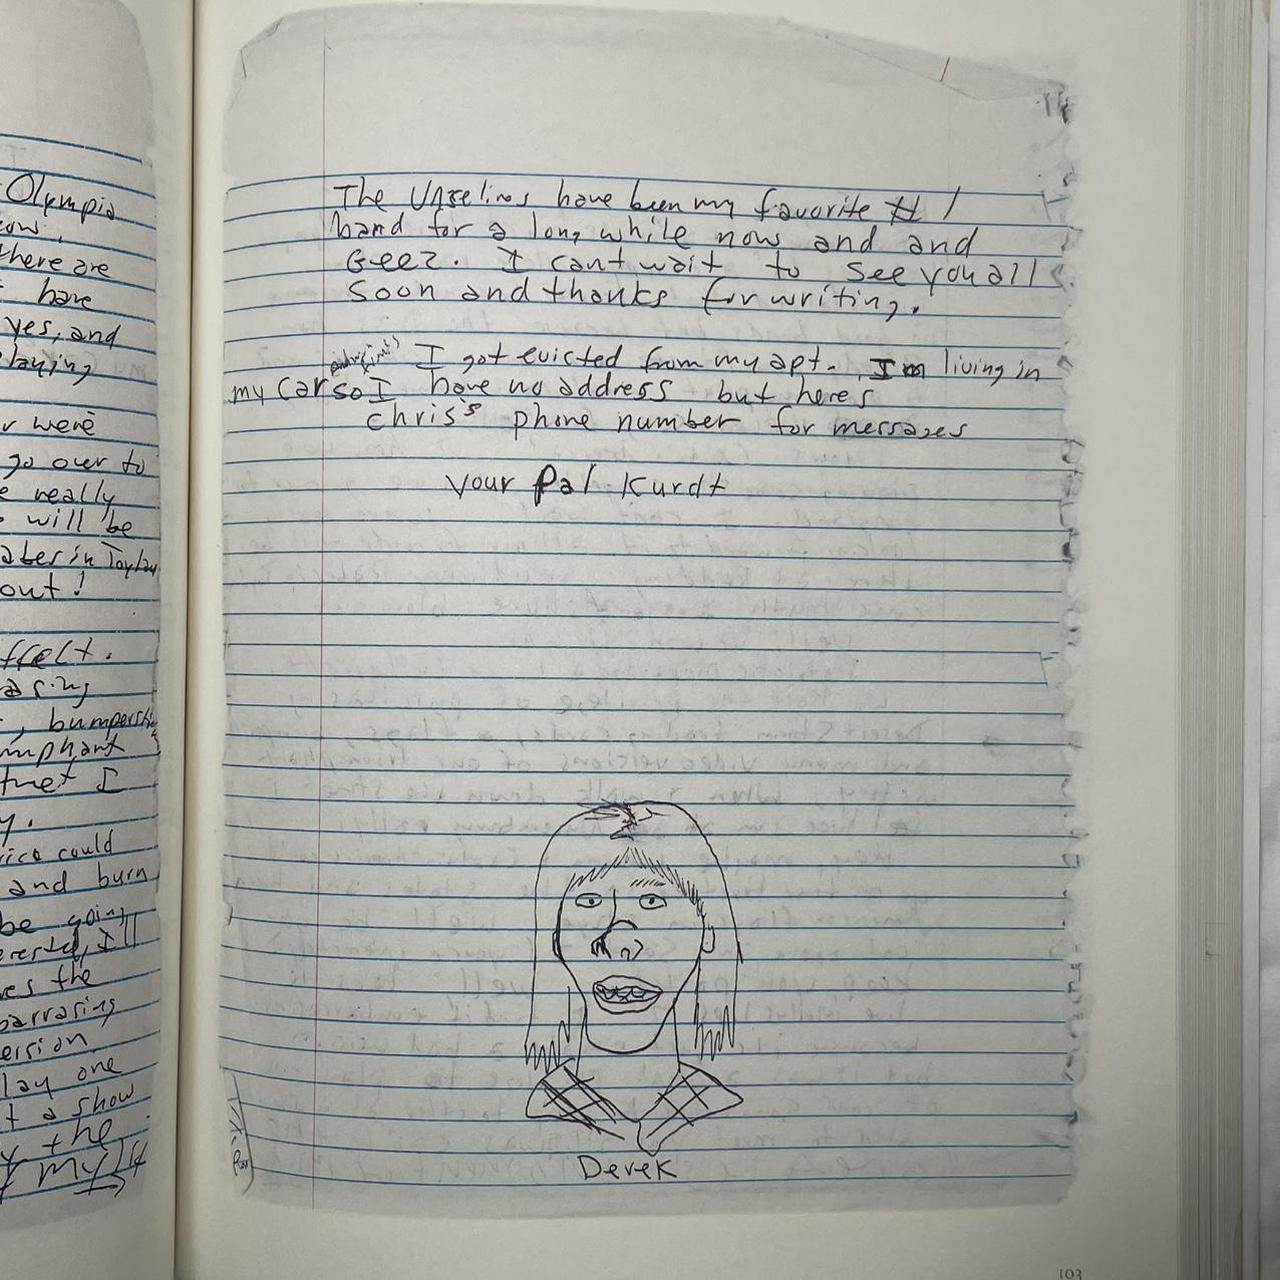 Olympia
now,
there are
have
yes, and
laying
were
go over to
really
will be
out!
ffect.
, bumpersti
umphant
I
y.
could
and burn
be going
I'll
the
barrasing
ersion
lay one
t a show
the
my
The Vaselines have been my favorite # 1
band for a long while now and and
Geez. I cant wait to see you all
soon and thanks for writing.
I got evicted from my apt. I'm living in
my car so I have no address but heres
Chris's phone number for messages
your pal Kurdt
Derek
103